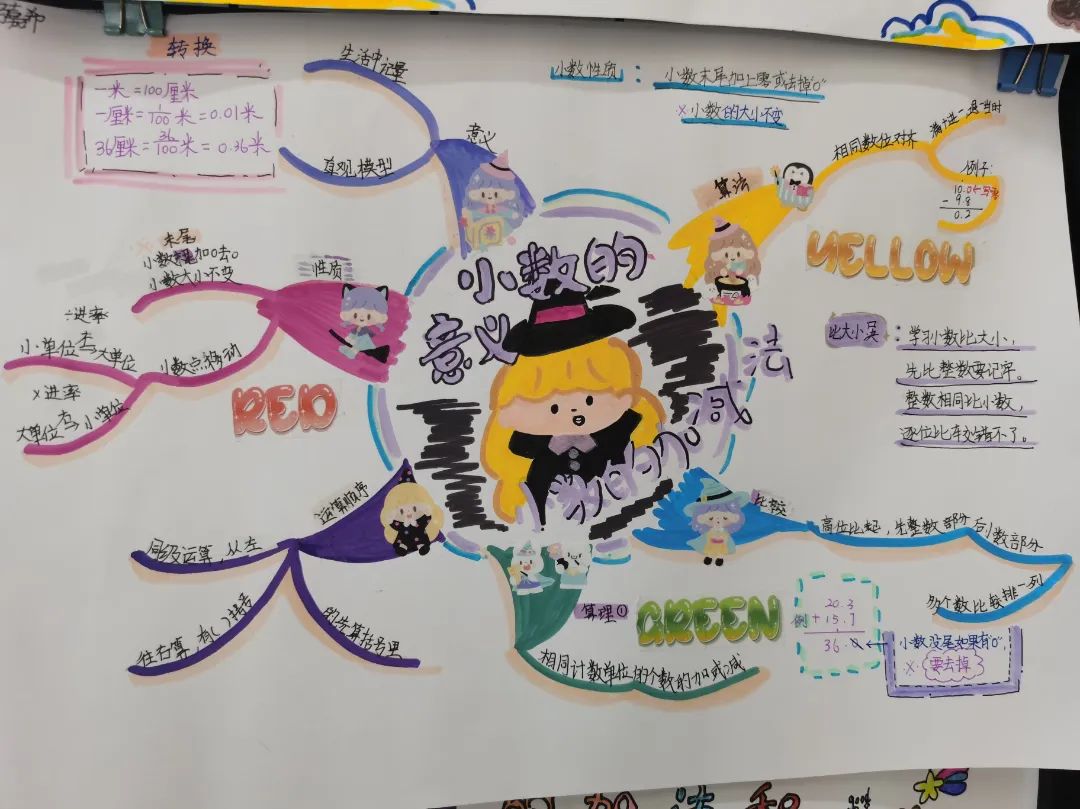 转换
一米=100厘米
一厘米=1/100米=0.01米
36厘米=36/100米=0.36米
生活中
直观模型
意义
小数性质：小数末尾加上零或去掉"0"
×小数的大小不变
算法
相同数位对齐
满十进一
例子：
10.0
- 9.8
0.2
YELLOW
比大小
学习小数比大小，
先比整数要记牢。
整数相同比小数，
逐位比较错不了。
小数的
意义
小数的加减
法
性质
末尾
小数加0去0
小数大小不变
小数点移动
÷进率
小单位去大单位
×进率
大单位去小单位
RED
运算顺序
同级运算，从左
往右算，有( )
先算括号里
比较
高位比起，先整数部分后小数部分
多个数比较排一列
算理①
GREEN
相同计数单位的个数的加或减
例
20.3
+ 15.7
36.0
小数没尾如果有"0"，
×：要去掉